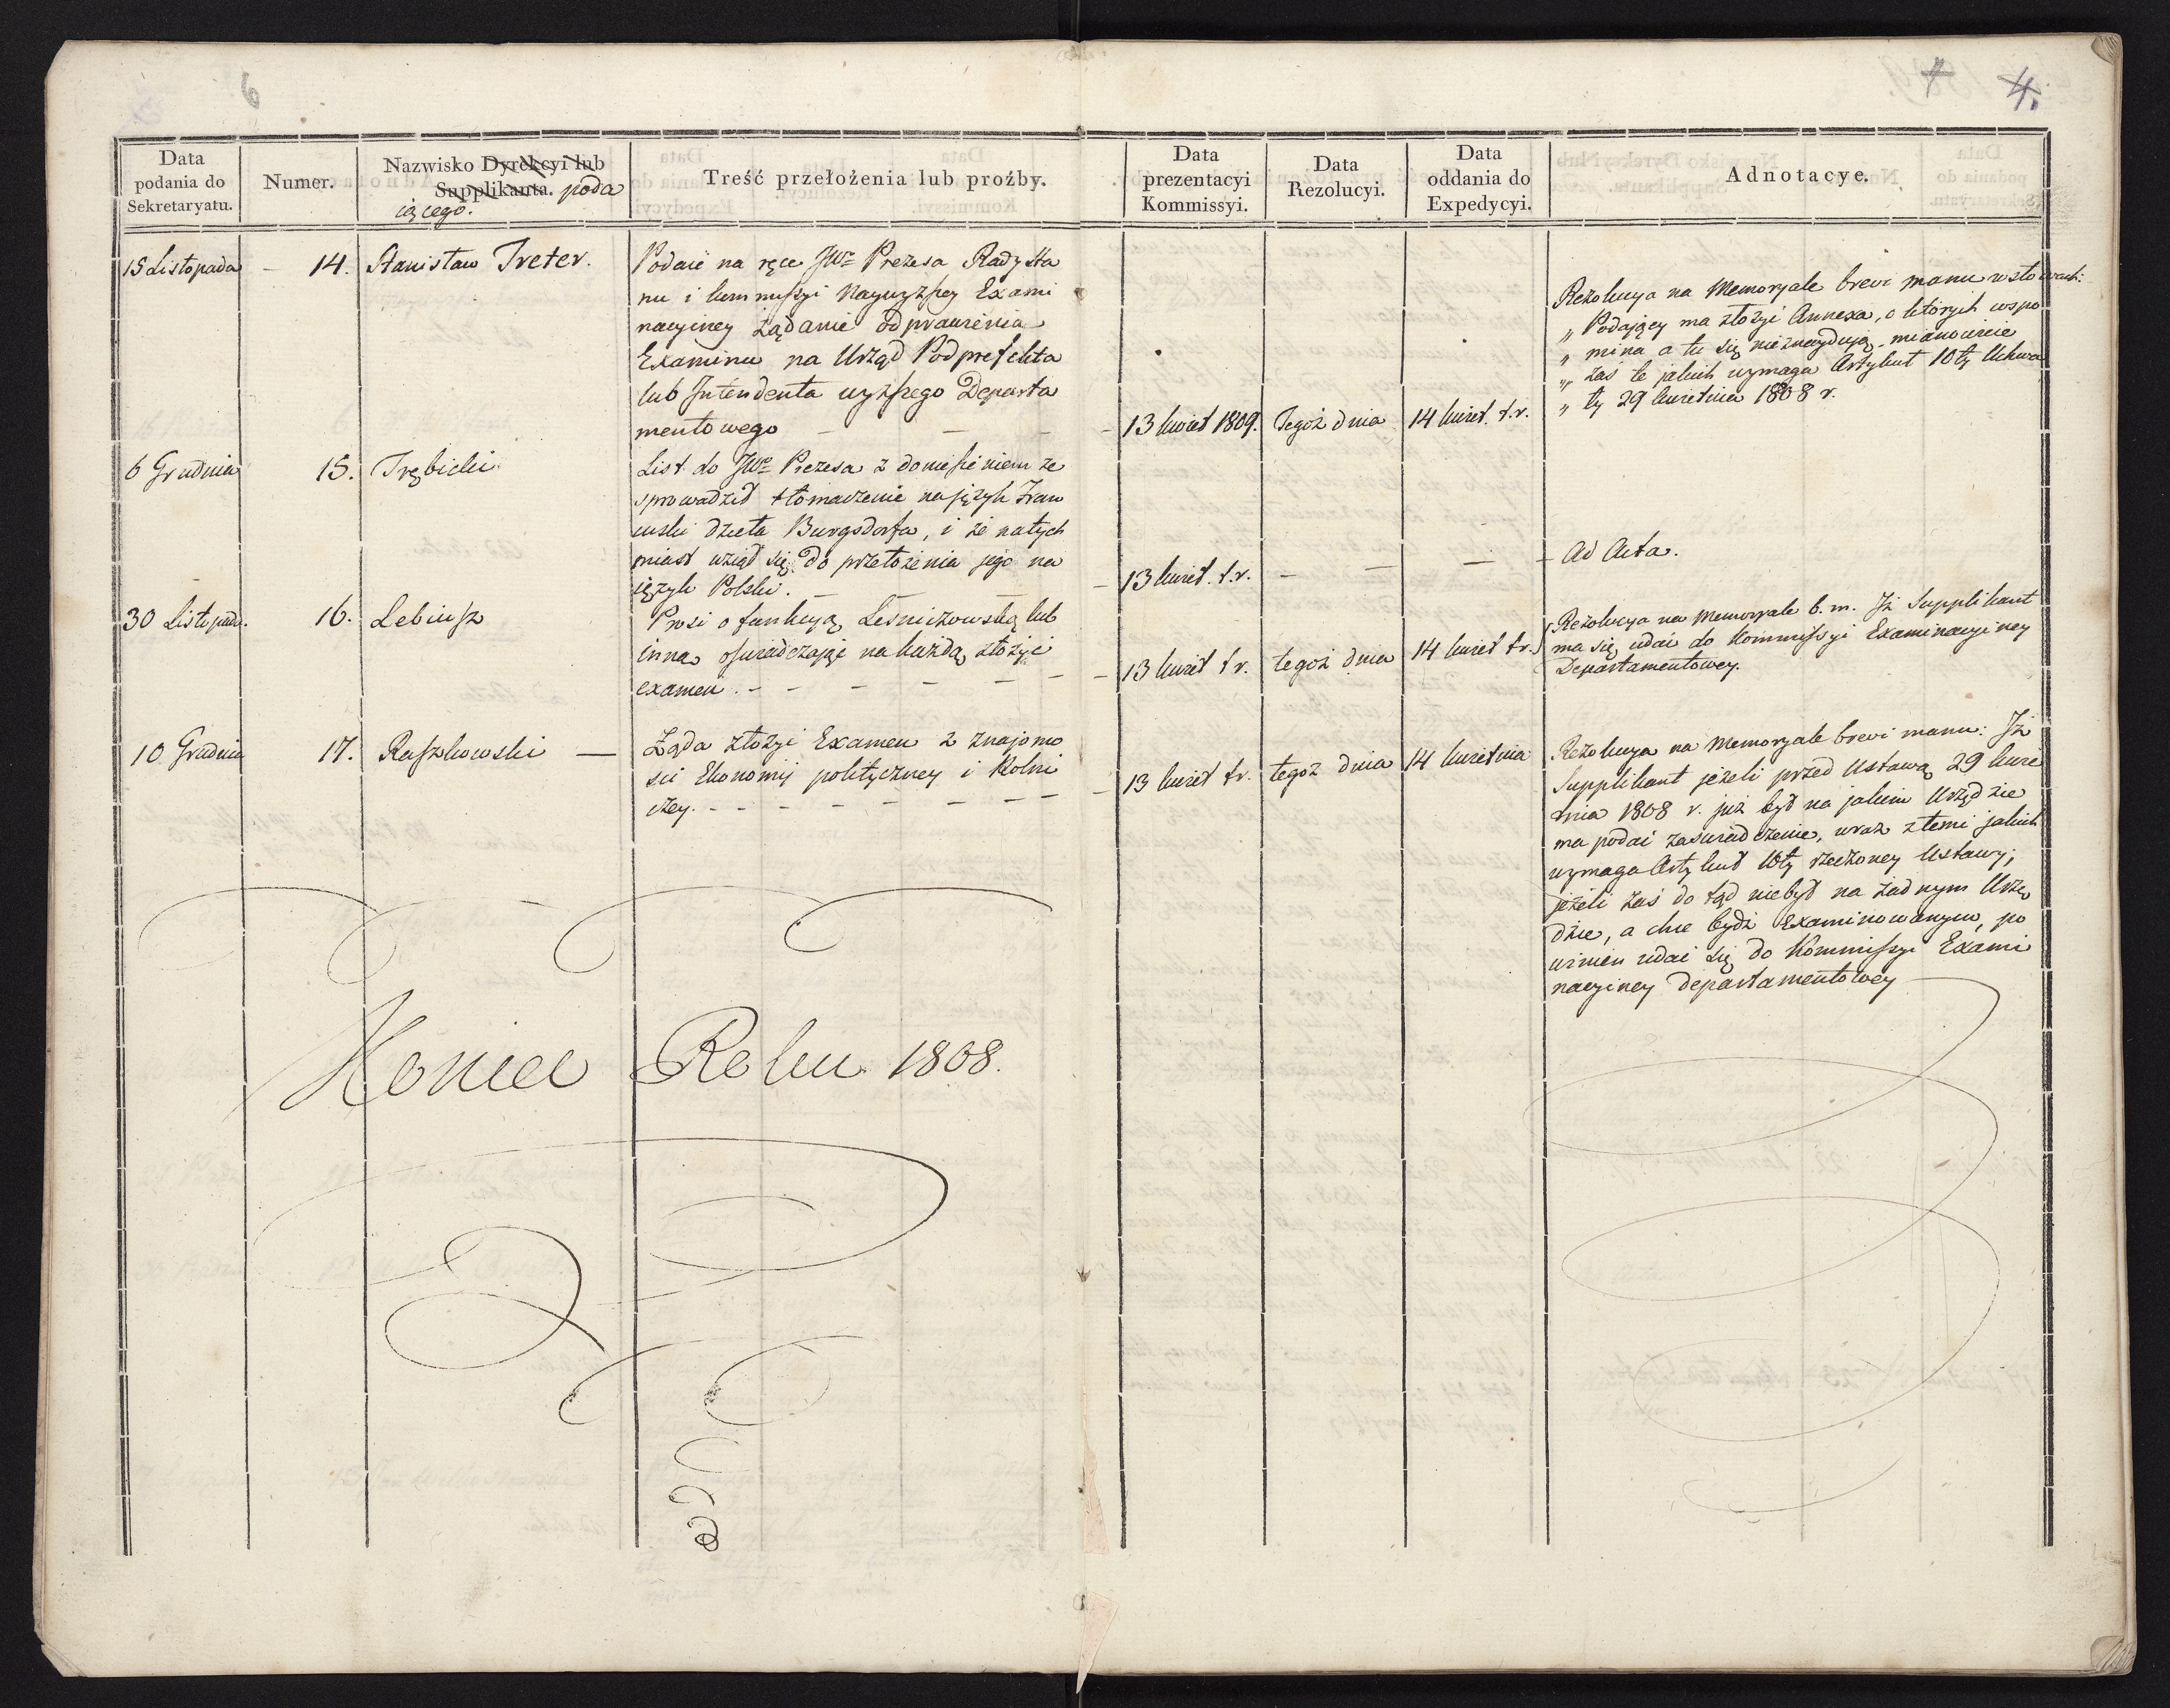 6
4.
Data podania do Sekretaryatu.
Numer.
Nazwisko Dyrekcyi lub Supplikanta. poda
iącego.
Treść przełożenia lub proźby.
Data prezentacyi Kommissyi.
Data Rezolucyi.
Data oddania do Expedycyi.
Adnotacye.
15 Listopada - 14. Stanisław Treter.
Podaie na ręce JWo Prezesa Rady Sta
nu i kommissyi Naywyższey Exami
nacyiney żądanie odprawienia
Examinu na Urząd Podprefekta
lub Intendenta wyższego Departa
mentowego - - - -
13 kwiet 1809. Tegoż dnia 14 kwiet. t.r.
Rezolucya na Memoryale brevi manu w słowach:
„ Podaiący ma złożyć Annexa, o których wspo
„ mina a tu się nieznaydują - mianowicie
„ zas te jakich wymaga Artykuł 10ty Uchwa
„ ły 29 kwietnia 1808 r.
6 Grudnia 15. Trębicki
List do JWo Prezesa z doniesieniem że
sprowadził tłomaczenie na język Fran
cuski dzieła Burgsdorfa, i że natych
miast wziął się do przełożenia jego na
język Polski. - - -
13 kwiet. t.r. - - -
Ad Acta.
30 Listopada. 16. Lebiusz
Prosi o funkcyą Leśniczowską lub
inna oświadczając na każdą złożyć
examen. - - - - - - -
13 kwiet t r. tegoż dnia 14 kwiet t r.
Rezolucya na Memoryale b. m. Iż Supplikant
ma się udać do Kommissyi Examinacyiney
Departamentowey.
10 Grudnia 17. Raszkowski -
Żąda złożyć Examen z znajomo
ści Ekonomij polityczney i Rolni
czey. - - - - - - - -
13 kwiet t r. tegoż dnia 14 kwietnia
Rezolucya na Memoryale brevi manu: Iż
Supplikant jeżeli przed Ustawą 29 kwie
tnia 1808 r. już był na jakim Urzędzie
ma podać zaswiadczenie, wraz z temi jakich
wymaga Artykuł 10ty rzeczoney Ustawy;
jeżeli zaś do tąd niebył na żadnym Urzę
dzie, a chce bydź Examinowanym, po
winien udać się do Kommissyi Exami
nacyiney departamentowey
Koniec Roku 1808.